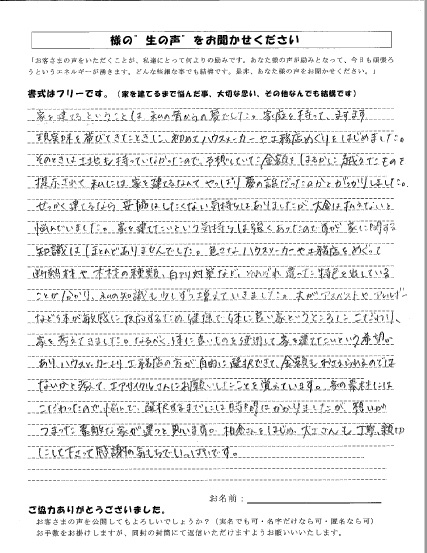 様の"生の声"をお聞かせください
「お客さまの声をいただくことが、私達にとって何よりの励みです。あなた様の声が励みとなって、今日も頑張ろ
うというエネルギーが湧きます。どんな些細な事でも結構です。是非、あなた様の声をお聞かせください。」
書式はフリーです。(家を建てるまで悩んだ事、大切な思い、その他なんでも結構です)
家を建てるということは、私の昔からの夢でした。家庭を持って、ますます
現実味を帯びてきたときに、初めてハウスメーカーや工務店めぐりをはじめました。
そのときは土地も持っていなかったので、予想していた金額をはるかに超えたものを
提示されて私には、家を建てるなんてやっぱり夢の話だったのかとがっかりしました。
せっかく建てるなら妥協はしたくない気持ちはありましたが、大金は払えないと
悩んでいました。家を建てたいという気持ちは強くあったのですが家に関する
知識はほとんどありませんでした。色々なハウスメーカーや工務店をめぐって
断熱材や木材の種類、白アリ対策など、それぞれ違った特色を出している
ことが分かり、私の知識も少しずつ増えていきました。夫がアスベストやアレルギー
など体が敏感に反応するため健康で体に良い家というところにこだわり、
家を考えてきました。なるべく体に良いものを使用して家を建てたいという希望が
あり、ハウスメーカーより工務店の方が自由に選択できて、金額もおさえられるのでは
ないかと考えて、エアサイクルさんにお願いしたことを覚えています。家の素材には
こだわったので悩んで、選択するまでには時間がかかりましたが、想いが
つまった素敵な家が建つと思います。柏倉さんをはじめ、大工さんも丁寧、親切
にして下さって感謝の気もちでいっぱいです。
お名前:
ご協力ありがとうございました。
お客さまの声を公開してもよろしいでしょうか?(実名でも可・名字だけなら可・匿名なら可)
お手数をお掛けしますが、同封の封筒にて返信いただけますようお願いいたします。